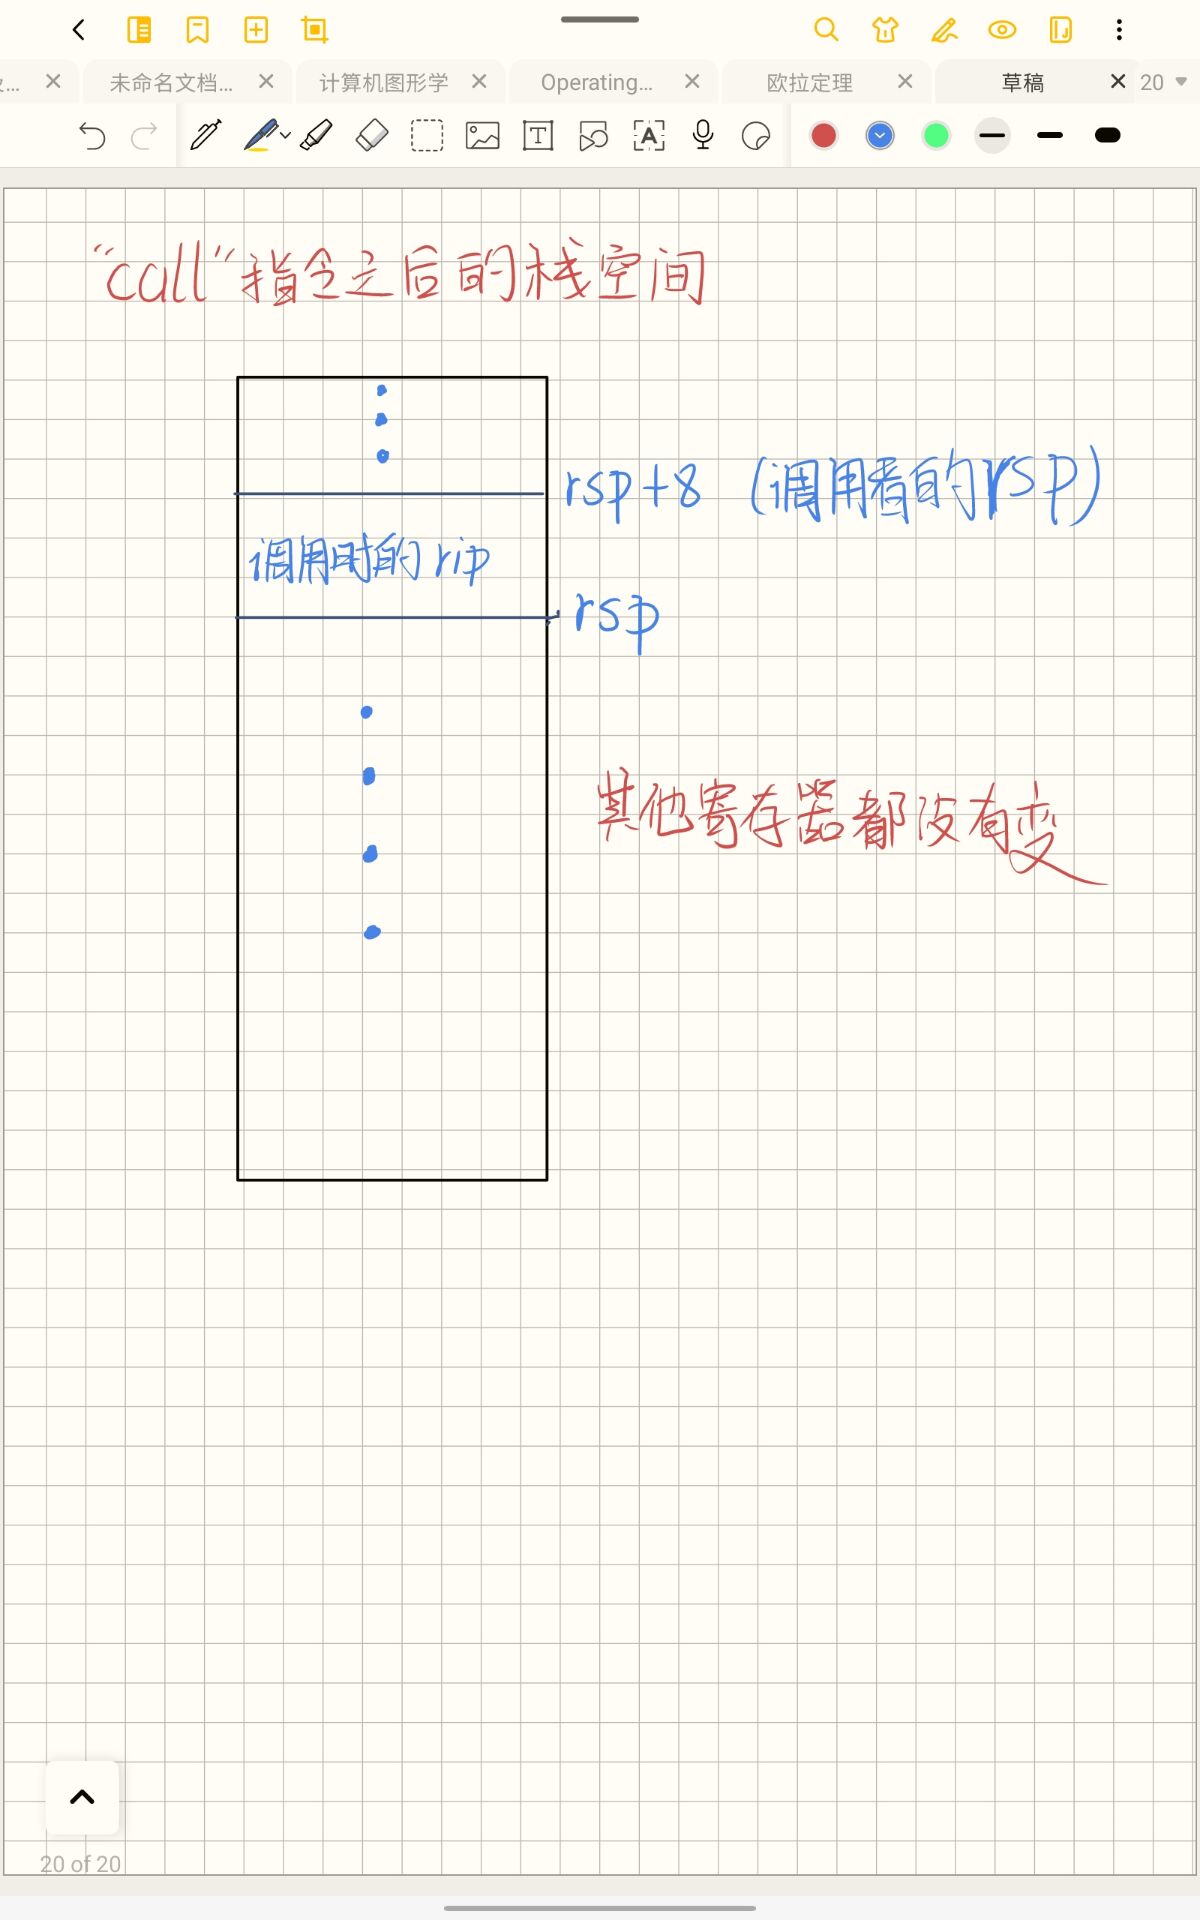 未命名文档...
计算机图形学
Operating...
欧拉定理
草稿
20
“call”指令之后的栈空间
rsp+8 (调用者的rsp)
调用时的 rip
rsp
其他寄存器都没有变
20 of 20